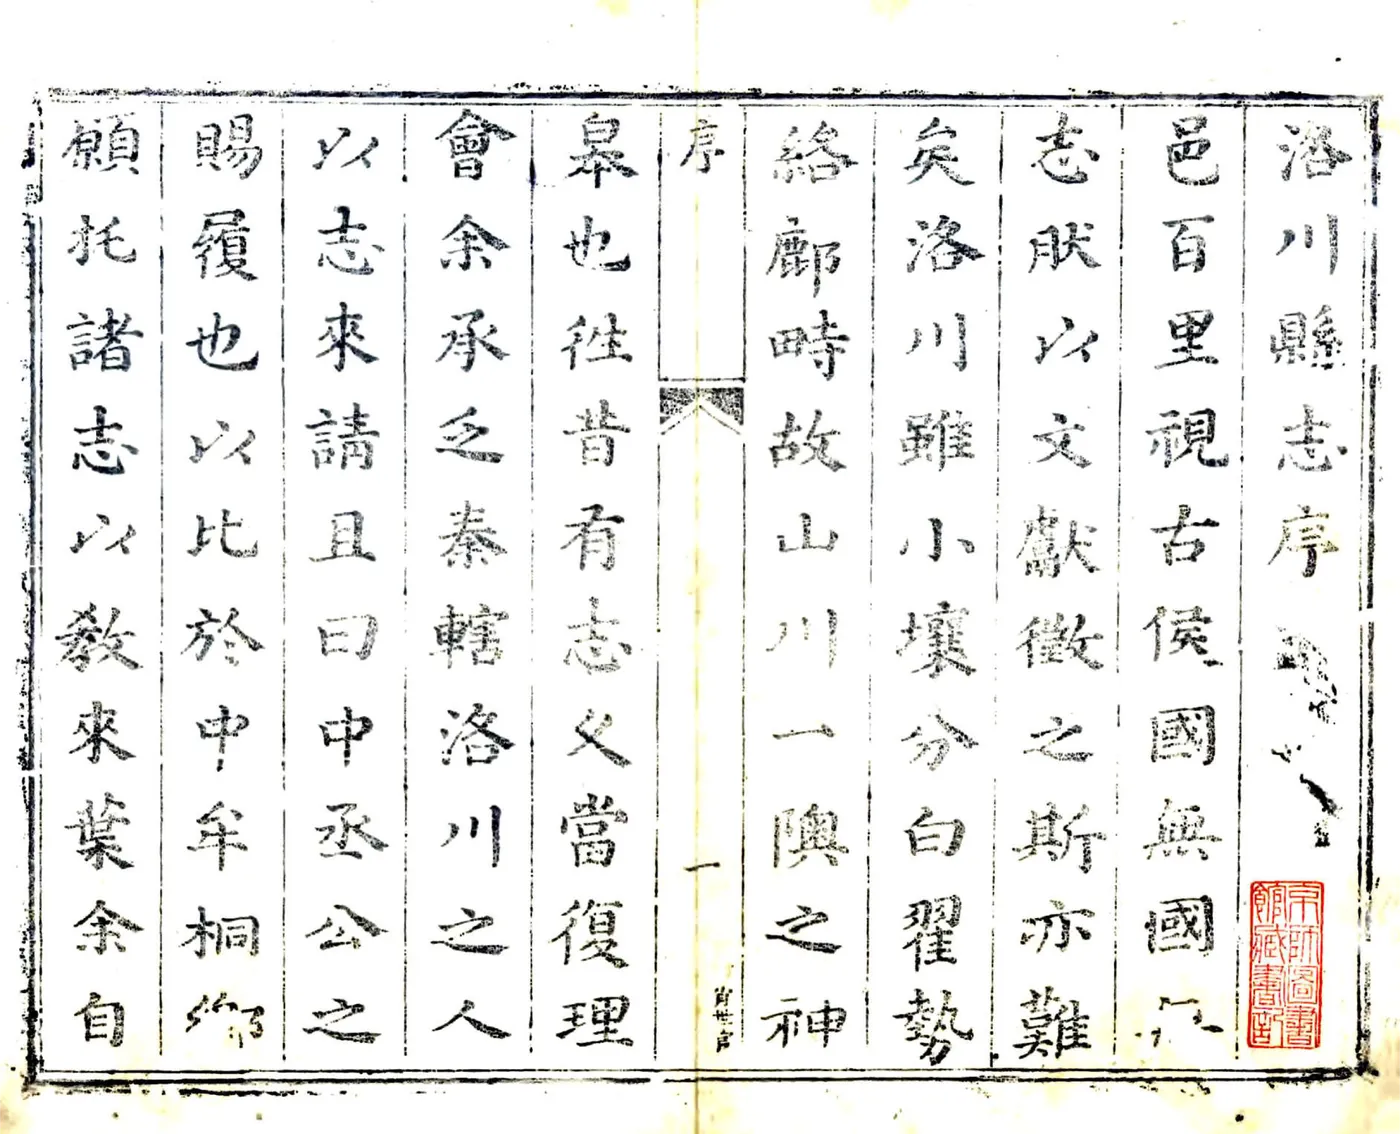 洛川縣志序
邑百里視古侯國無國
志肰以文獻徵之斯亦難
矣洛川雖小壤分白翟勢
絡鄜畤故山川一隩之神
序
一
皋也徃昔有志乆當復理
會余承乏秦轄洛川之人
以志來請且曰中丞公之
賜履也以比於中牟桐
願托諸志以敎來葉余自
京師圖書
館藏書記